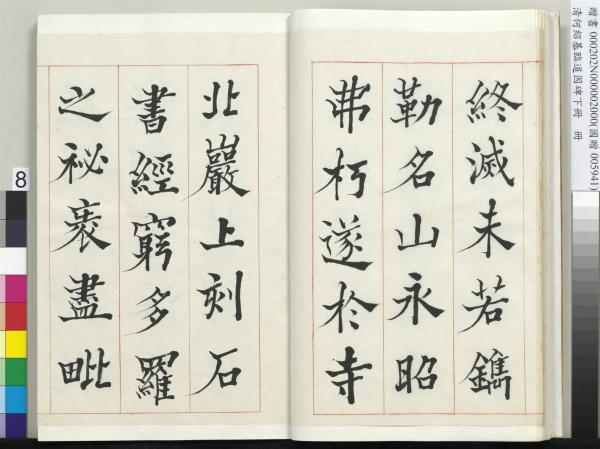 終滅未若鐫
勒名山永昭
弗朽遂於寺
北巖上刻石
書經窮多羅
之祕袠盡毗
贈書 000202N000002000(國贈 005941)
清何紹基臨道因碑下冊 冊
8